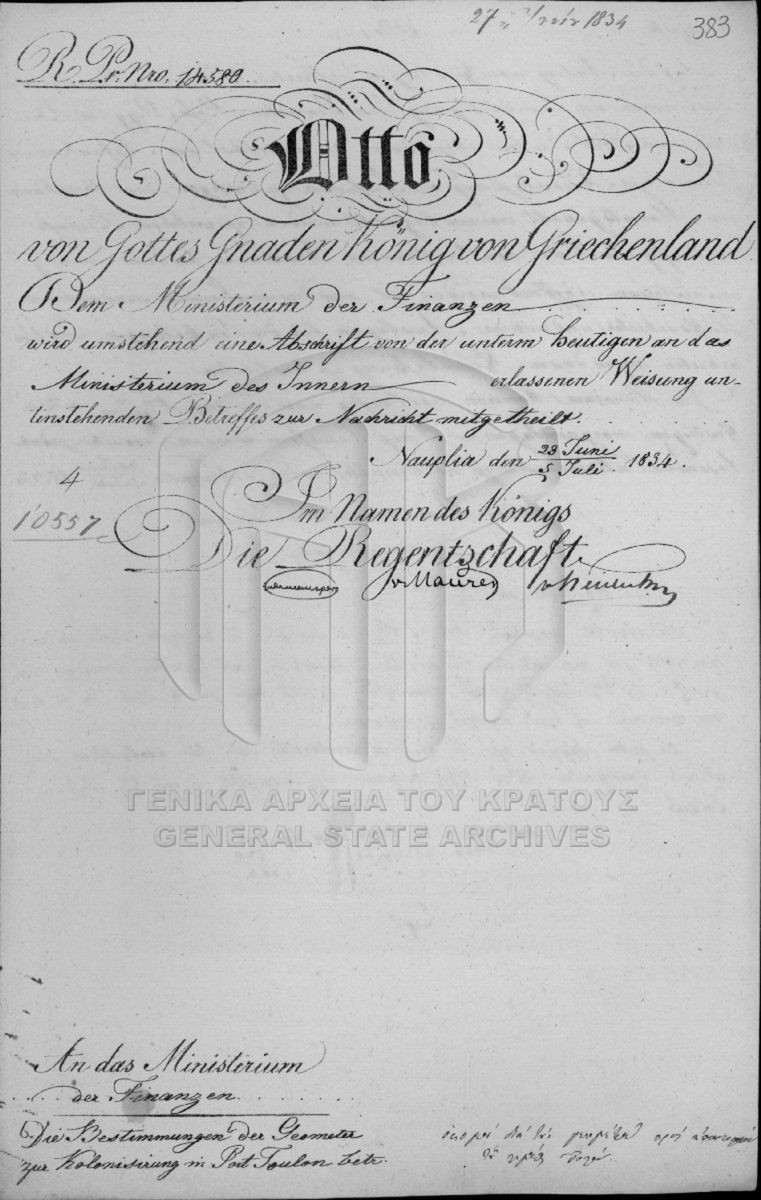 27 1834
383
R. Pr. Nro. 14580.
Otto
von Gottes Gnaden König von Griechenland
Dem Ministerium der Finanzen
wird umstehend eine Abschrift von der unterm Heutigen an das
Ministerium des Innern erlassenen Weisung un-
tenstehenden Betreffes zur Nachricht mitgetheilt.
Nauplia den 23 Juni / 5 Juli 1834.
4
10557
Im Namen des Königs
Die Regentschaft
v Maurer
ΓΕΝΙΚΑ ΑΡΧΕΙΑ ΤΟΥ ΚΡΑΤΟΥΣ
GENERAL STATE ARCHIVES
An das Ministerium
der Finanzen
Die Bestimmungen der Geometer
zur Kolonisirung in Port Toulon betr.